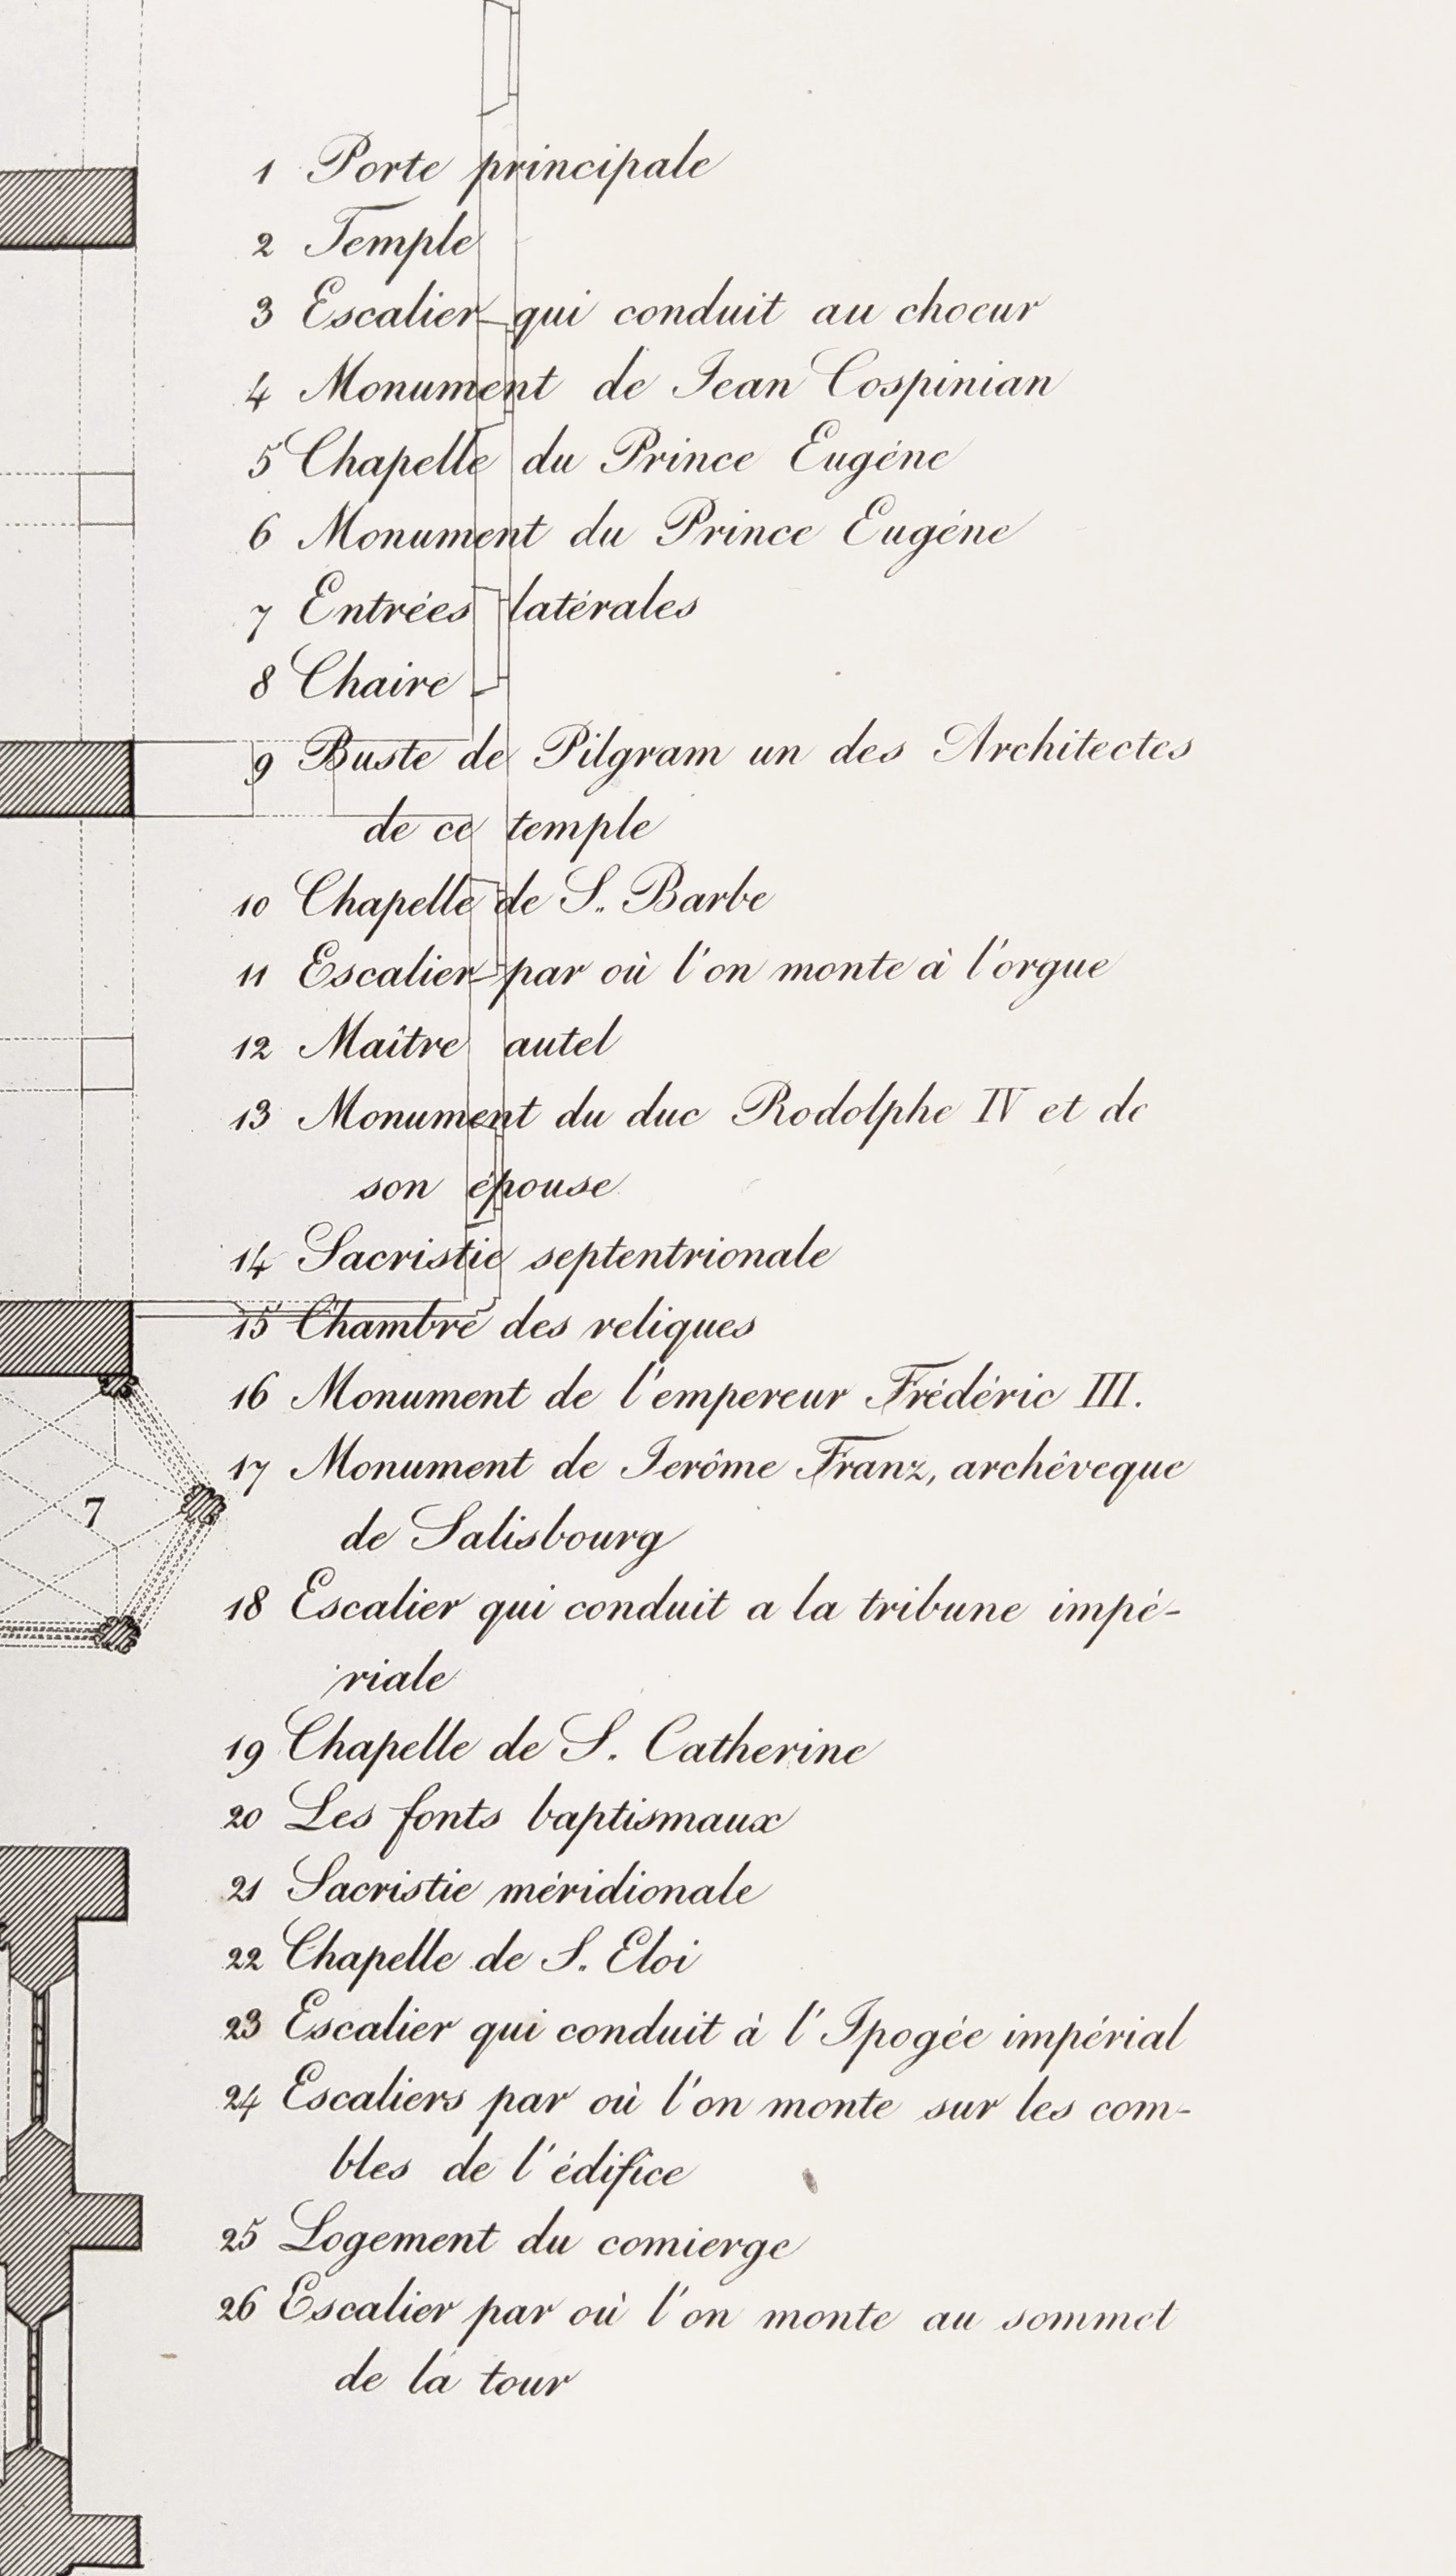 1 Porte principale
2 Temple
3 Escalier qui conduit au choeur
4 Monument de Jean Cospinian
5 Chapelle du Prince Eugéne
6 Monument du Prince Eugéne
7 Entrées latérales
8 Chaire
9 Buste de Pilgram un des Architectes
de ce temple
10 Chapelle de S. Barbe
11 Escalier par où l'on monte à l'orgue
12 Maître autel
13 Monument du duc Rodolphe IV et de
son épouse
14 Sacristie septentrionale
15 Chambre des reliques
16 Monument de l'empereur Frédéric III.
7
17 Monument de Jerôme Franz, archêveque
de Salisbourg
18 Escalier qui conduit a la tribune impé-
riale
19 Chapelle de S. Catherine
20 Les fonts baptismaux
21 Sacristie méridionale
22 Chapelle de S. Eloi
23 Escalier qui conduit à l'Ipogée impérial
24 Escaliers par où l'on monte sur les com-
bles de l'édifice
25 Logement du comierge
26 Escalier par où l'on monte au sommet
de la tour